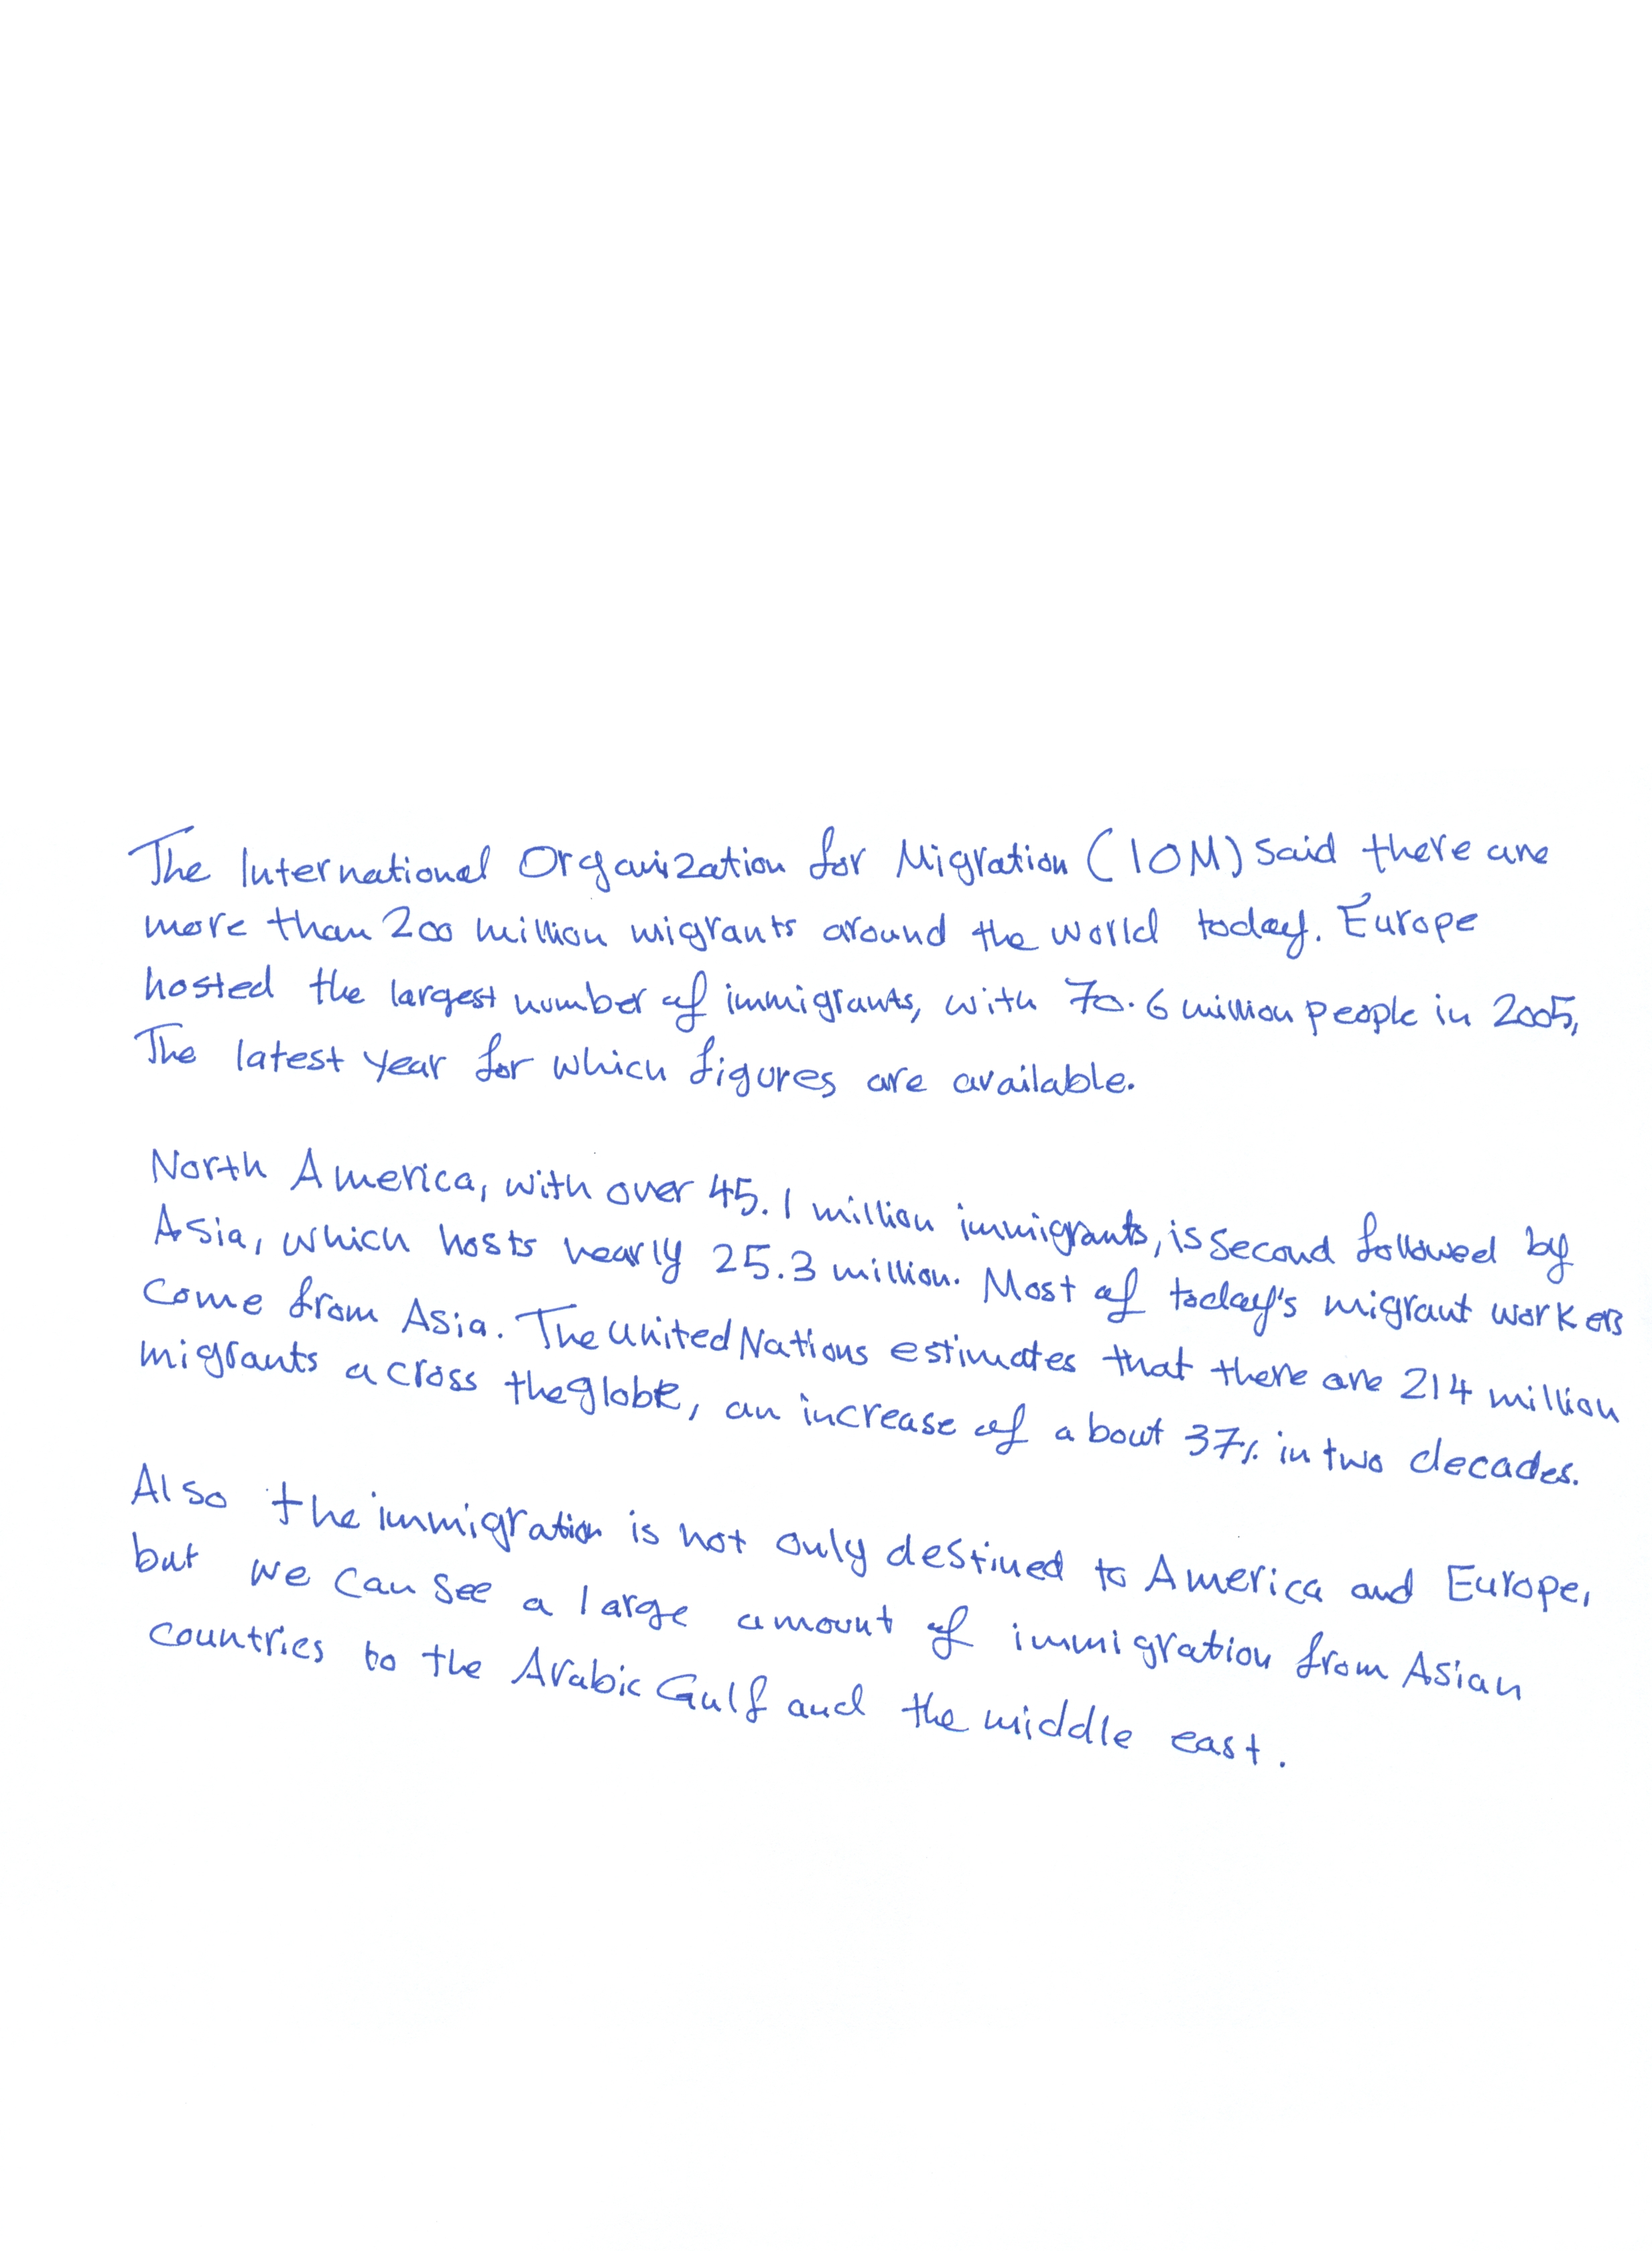 The International Organization for Migration (IOM) said there are
more than 200 million migrants around the world today. Europe
hosted the largest number of immigrants, with 70.6 million people in 2005,
The latest year for which figures are available.
North America, with over 45.1 million immigrants, is second followed by
Asia, which hosts nearly 25.3 million. Most of today's migrant workers
Come from Asia. The United Nations estimates that there are 214 million
migrants across the globe, an increase of about 37% in two decades.
Also the immigration is not only destined to America and Europe,
but we can see a large amount of immigration from Asian
countries to the Arabic Gulf and the middle east.